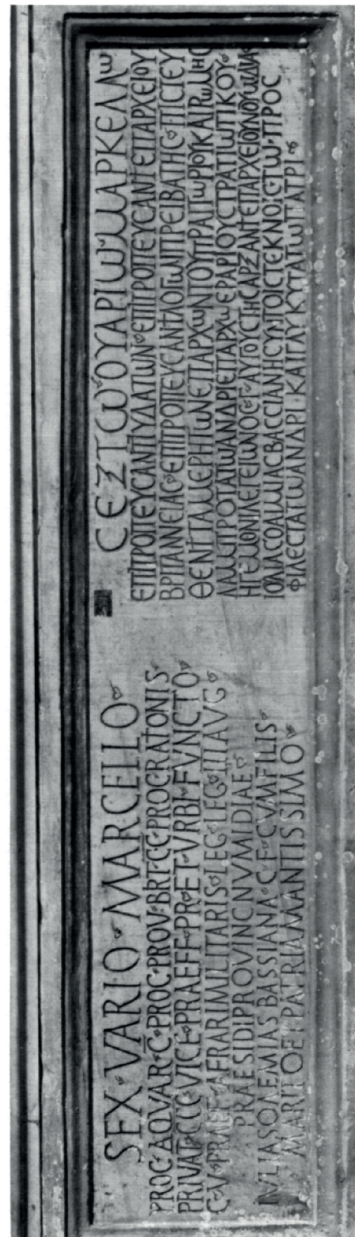 SEX·VARIO·MARCELLO
PROC·AQVAR·C·PROC·PROV·BRIT·CC·PROC·RATIONIS
PRIVAT·CCC·VICE·PRAEFF·PR·ET·VRBI·FVNCTO
C·V·PRAEF·AERARI MILITARIS·LEG·LEG·III AVG
PRAESIDI PROVINC NVMIDIAE
IVLIA SOAEMIAS BASSIANA·C·F·CVM FILIS
MARITO ET PATRI AMANTISSIMO
CΕΞΤΩ ΟΥΑΡΙΩ ΜΑΡΚΕΛΛΩ
ΕΠΙΤΡΟΠΕΥCΑΝΤΙ ΥΔΑΤΩΝ ΕΠΙΤΡΟΠΕΥCΑΝΤΙ ΕΠΑΡΧΕΙΟΥ
ΒΡΙΤΑΝΝΕΙΑC ΕΠΙΤΡΟΠΕΥCΑΝΤΙ ΛΟΓΩΝ ΠΡΕΙΒΑΤΗC ΠΙCΤΕΥ
ΘΕΝΤΙ ΤΑ ΜΕΡΗ ΤΩΝ ΕΠΑΡΧΩΝ ΤΟΥ ΠΡΑΙΤΩΡΙΟΥ ΚΑΙ ΡΩΜΗC
ΛΑΜΠΡΟΤΑΤΩ ΑΝΔΡΙ ΕΠΑΡΧΩ ΕΡΑΡΙΟΥ CΤΡΑΤΙΩΤΙΚΟΥ
ΗΓΕΜΟΝΙ ΛΕΓΕΙΩΝΟC Γ ΑΥΓΟΥCΤΗC ΑΡΞΑΝΤΙ ΕΠΑΡΧΕΙΟΥ ΝΟΥΜΙΔΙΑC
ΙΟΥΛΙΑ CΟΑΙΜΙΑC ΒΑCCΙΑΝΗ CΥΝ ΤΟΙC ΤΕΚΝΟΙC ΤΩ ΠΡΟC
ΦΙΛΕCΤΑΤΩ ΑΝΔΡΙ ΚΑΙ ΓΛΥΚΥΤΑΤΩ ΠΑΤΡΙ